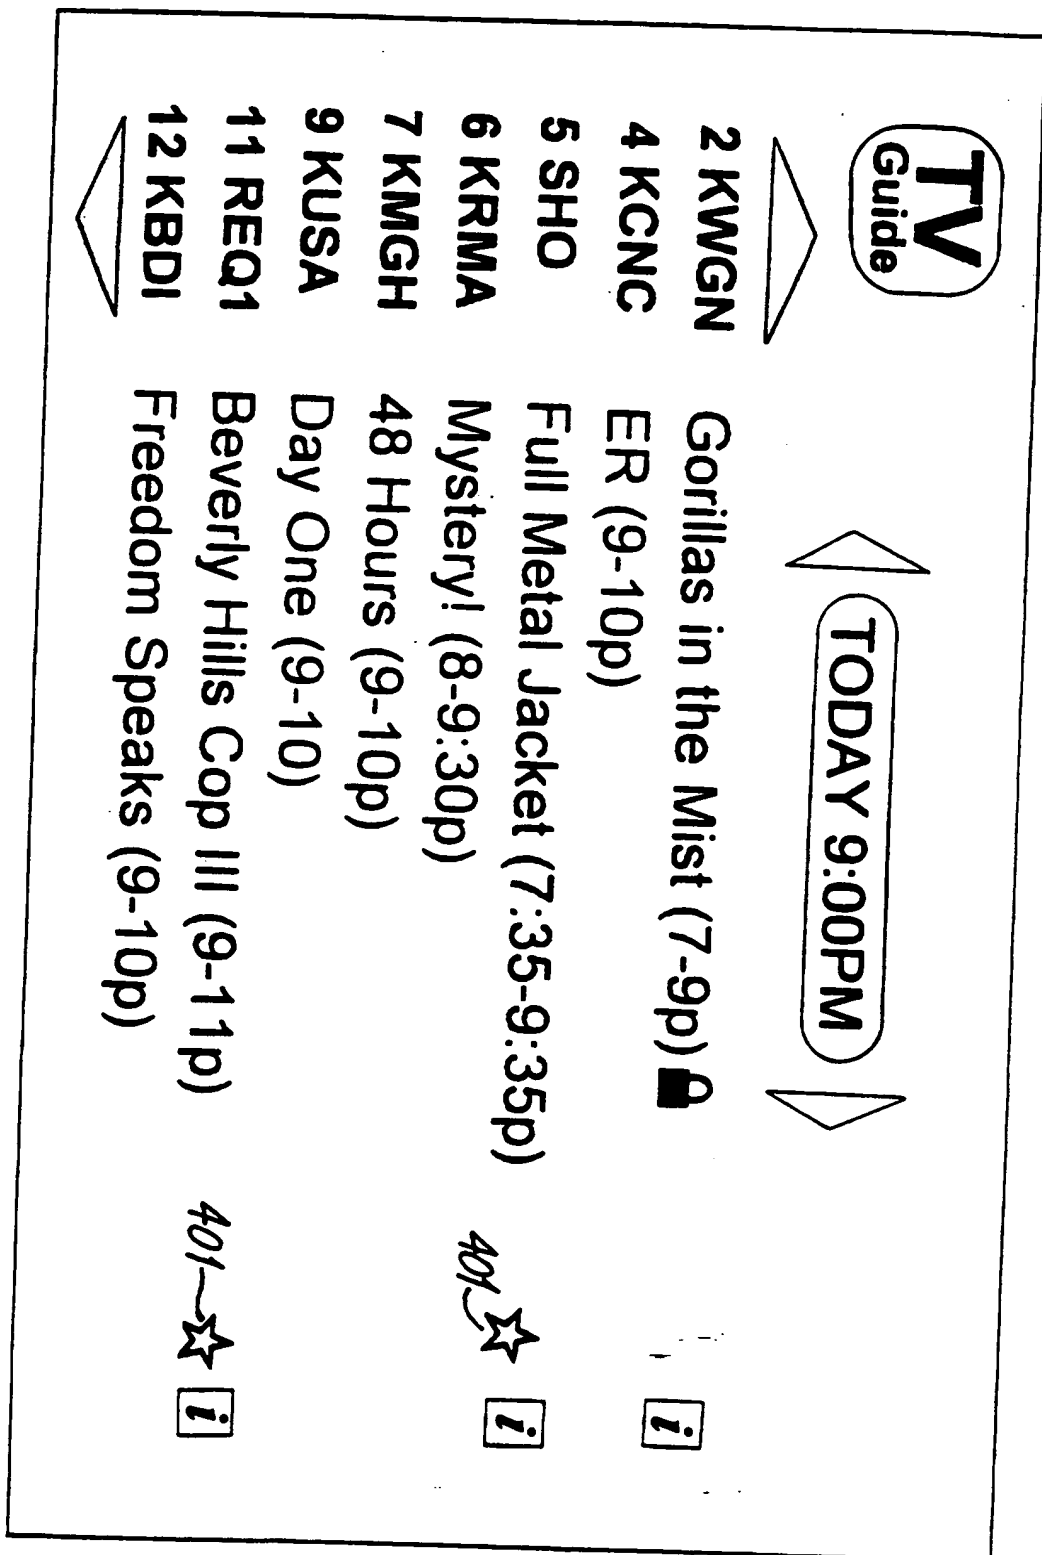 TV
Guide
TODAY 9:00PM
2 KWGN Gorillas in the Mist (7-9p)
i
4 KCNC ER (9-10p)
5 SHO Full Metal Jacket (7:35-9:35p)
401 i
6 KRMA Mystery! (8-9:30p)
7 KMGH 48 Hours (9-10p)
9 KUSA Day One (9-10)
11 REQ1 Beverly Hills Cop III (9-11p)
401 i
12 KBDI Freedom Speaks (9-10p)